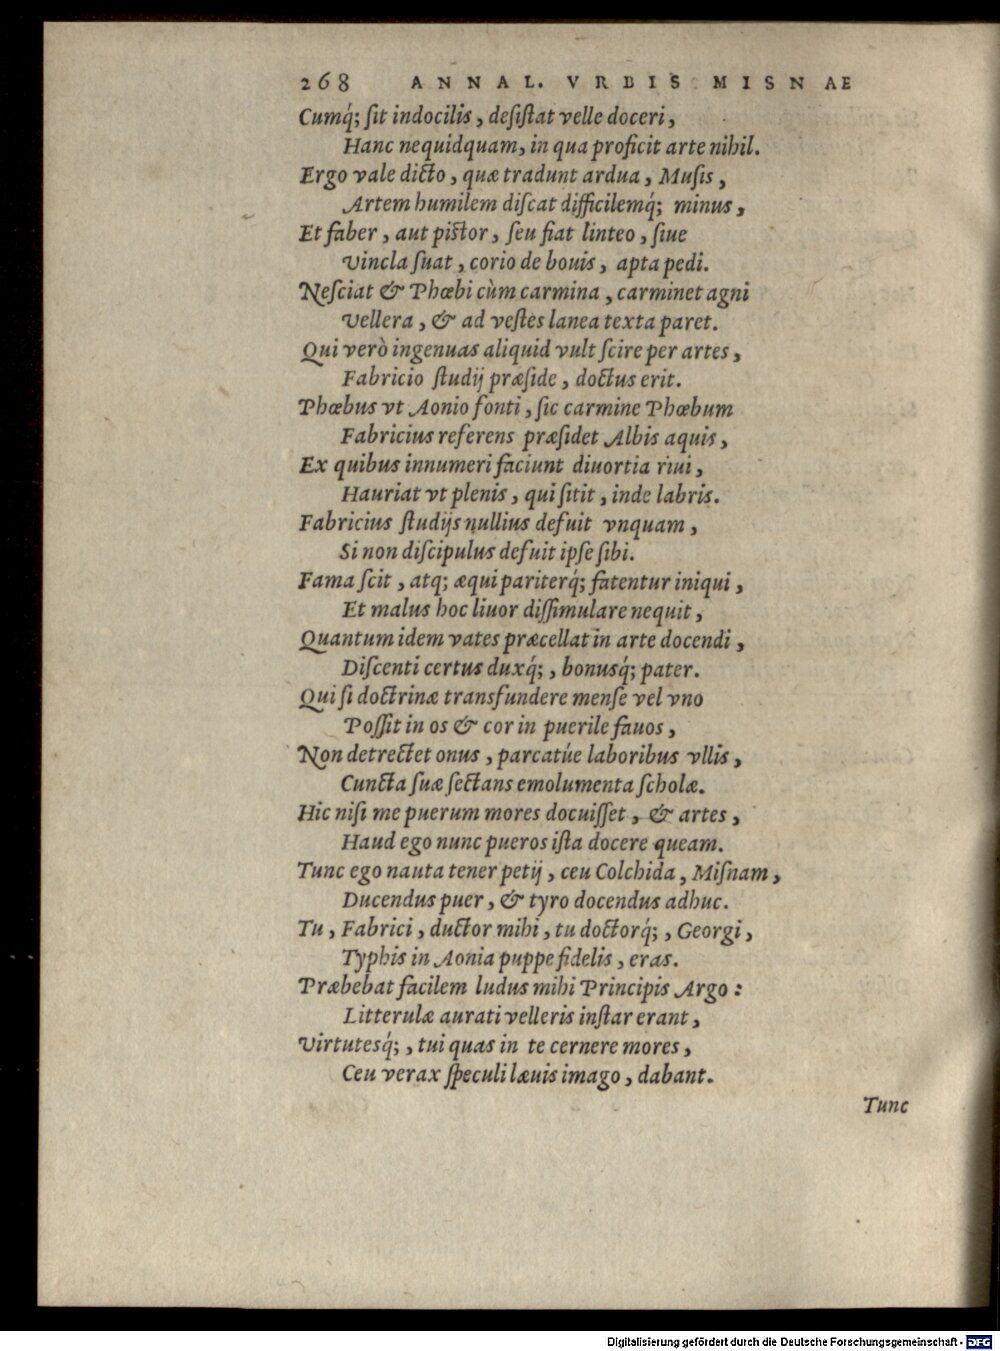 268 ANNAL. VRBIS MISNAE
Cumq́; ſit indocilis, deſiſtat velle doceri,
Hanc nequidquam, in qua proficit arte nihil.
Ergo vale dicto, quæ tradunt ardua, Muſis,
Artem humilem diſcat difficilemq́; minus,
Et faber, aut piſtor, ſeu fiat linteo, ſiue
Vincla ſuat, corio de bouis, apta pedi.
Neſciat & Phœbi cùm carmina, carminet agni
Vellera, & ad veſtes lanea texta paret.
Qui verò ingenuas aliquid vult ſcire per artes,
Fabricio ſtudij præſide, doctus erit.
Phœbus vt Aonio fonti, ſic carmine Phœbum
Fabricius referens præſidet Albis aquis,
Ex quibus innumeri faciunt diuortia riui,
Hauriat vt plenis, qui ſitit, inde labris.
Fabricius ſtudijs nullius defuit vnquam,
Si non diſcipulus defuit ipſe ſibi.
Fama ſcit, atq; æqui pariterq́; fatentur iniqui,
Et malus hoc liuor diſſimulare nequit,
Quantum idem vates præcellat in arte docendi,
Diſcenti certus duxq́;, bonusq́; pater.
Qui ſi doctrinæ transfundere menſe vel vno
Poſſit in os & cor in puerile fauos,
Non detrectet onus, parcatúe laboribus vllis,
Cuncta ſuæ ſectans emolumenta ſcholæ.
Hic niſi me puerum mores docuiſſet, & artes,
Haud ego nunc pueros iſta docere queam.
Tunc ego nauta tener petij, ceu Colchida, Miſnam,
Ducendus puer, & tyro docendus adhuc.
Tu, Fabrici, ductor mihi, tu doctorq́;, Georgi,
Typhis in Aonia puppe fidelis, eras.
Præbebat facilem ludus mihi Principis Argo:
Litterulæ aurati velleris inſtar erant,
Virtutesq́;, tui quas in te cernere mores,
Ceu verax ſpeculi læuis imago, dabant.
Tunc
Digitalisierung gefördert durch die Deutsche Forschungsgemeinschaft - DFG